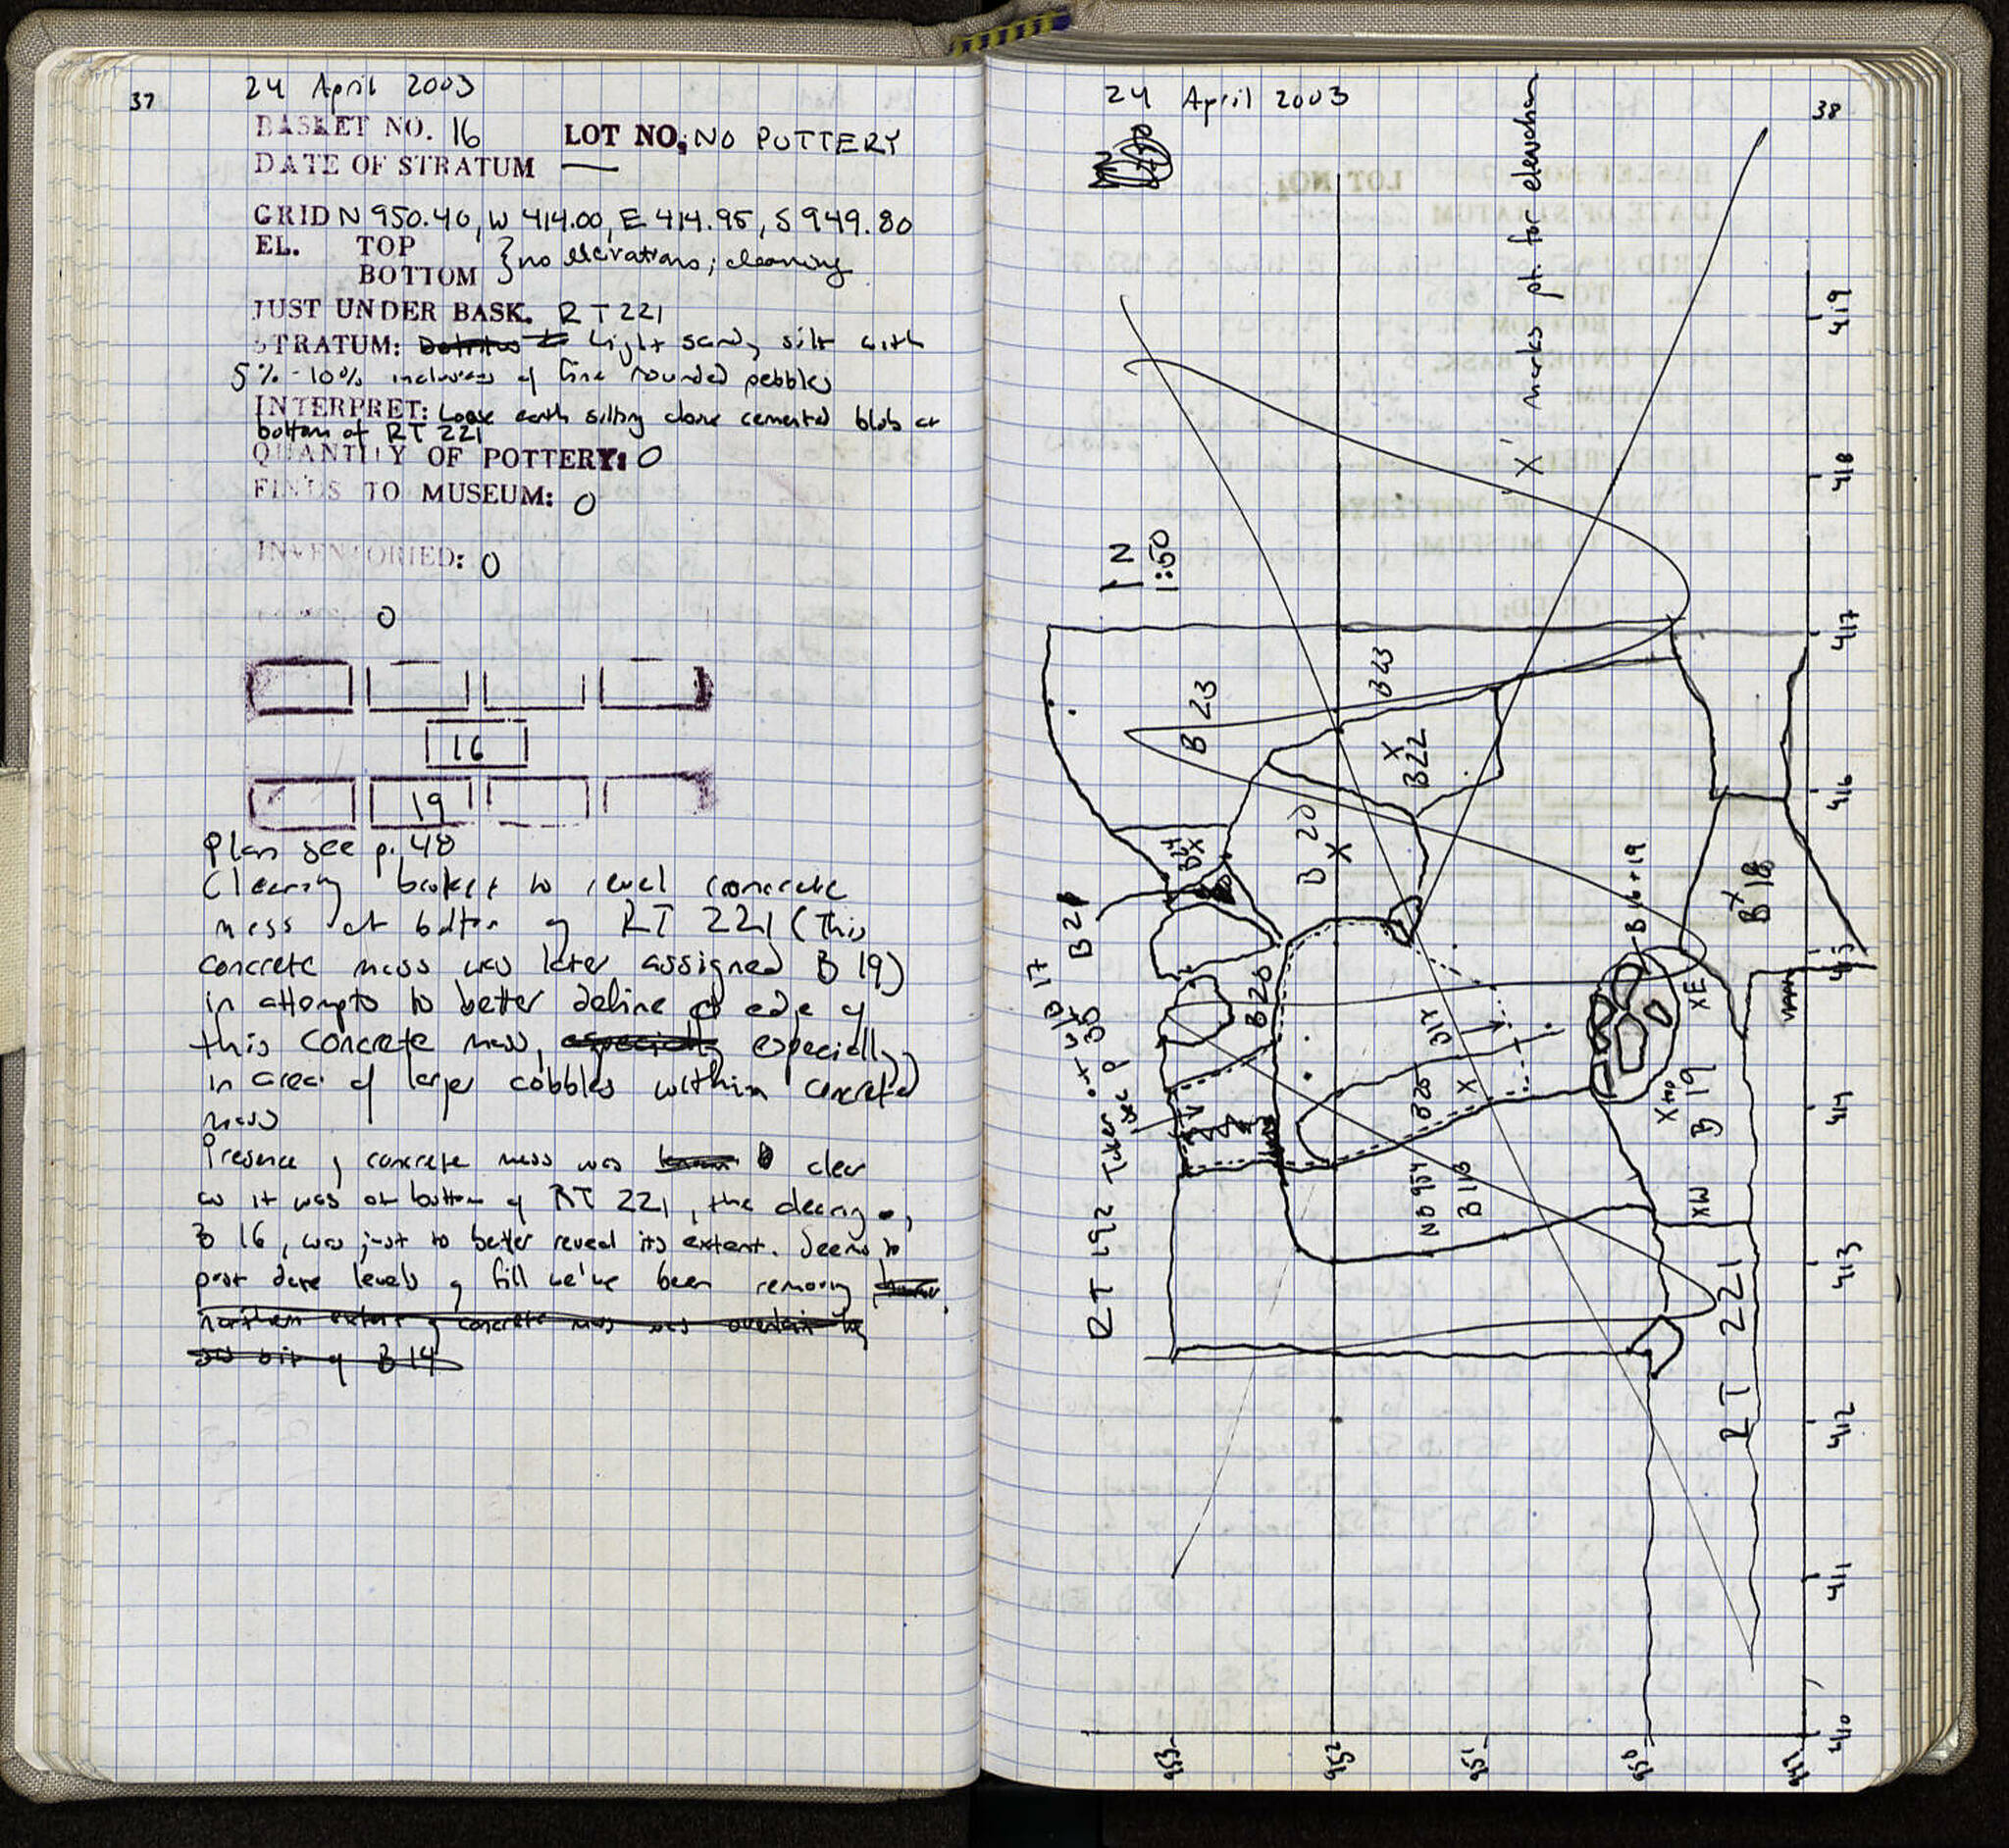 37
24 April 2003
BASKET NO. 16 LOT NO. NO POTTERY
DATE OF STRATUM —
GRID N 950.40, W 414.00, E 414.95, S 949.80
EL. TOP
BOTTOM } no elevations; cleaning
JUST UNDER BASK. RT 221
STRATUM: light sandy silt with
5% - 10% inclusions of fine rounded pebbles
INTERPRET: Loose earth silting above cemented blob at
bottom of RT 221
QUANTITY OF POTTERY: 0
FINDS TO MUSEUM: 0
INVENTORIED: 0
0
16
19
Plan see p. 48
Cleaning basket to reveal concrete
mass at bottom of RT 221 (This
concrete mass was later assigned B 19)
in attempts to better define edge of
this concrete mass, especially especially
in area of larger cobbles within concrete
mass
Presence of concrete mass was clear
as it was at bottom of RT 221, the cleaning,
B 16, was just to better reveal its extent. Seems to
post date levels of fill we've been removing
northern extent of concrete mass was overlain by
SW bit of B 14
38
24 April 2003
N
'X' marks pt. for elevation
N
1:50
B 23
B 23
X
B22
B 20
X
B24
X
B21
B 17
B 20
B 16 + 19
X
B 18
XE
B17
B25
X
X top
B 19
XW
N0954
B 18
RT 192
RT 221
419
418
417
416
415
414
413
412
411
410
953
952
951
950
949